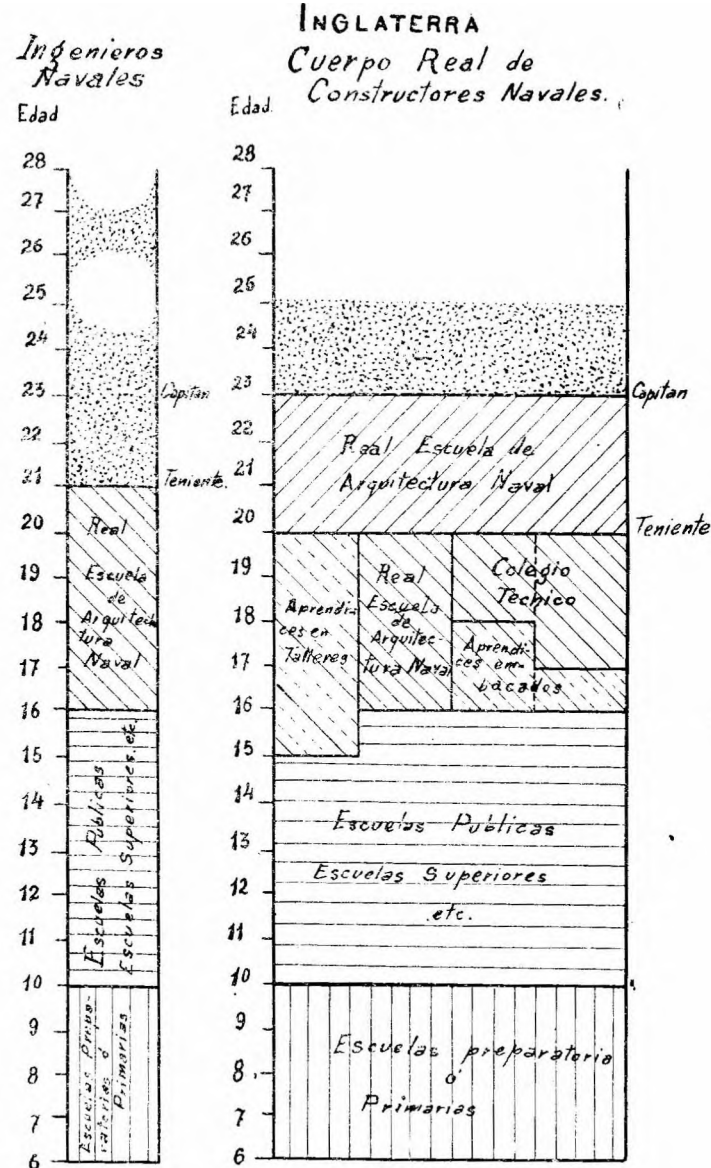 INGLATERRA
Ingenieros
Navales
Edad
28
27
26
25
24
23
22
21
20
19
18
17
16
15
14
13
12
11
10
9
8
7
6
Capitan
Teniente.
Real
Escuela
de
Arquitect
tura
Naval
Escuelas Publicas
Escuelas Superiores, etc.
Escuelas Prepa-
ratorias ó
Primarias
Cuerpo Real de
Constructores Navales.
Edad.
28
27
26
25
24
23
22
21
20
19
18
17
16
15
14
13
12
11
10
9
8
7
6
Capitan
Teniente
Real Escuela de
Arquitectura Naval
Aprendi-
ces en
Talleres
Real
Escuela
de
Arquitec-
tura Naval
Colegio
Technico
Aprendi-
ces em-
bacados
Escuelas Publicas
Escuelas Superiores
etc.
Escuelas preparatoria
ó
Primarias